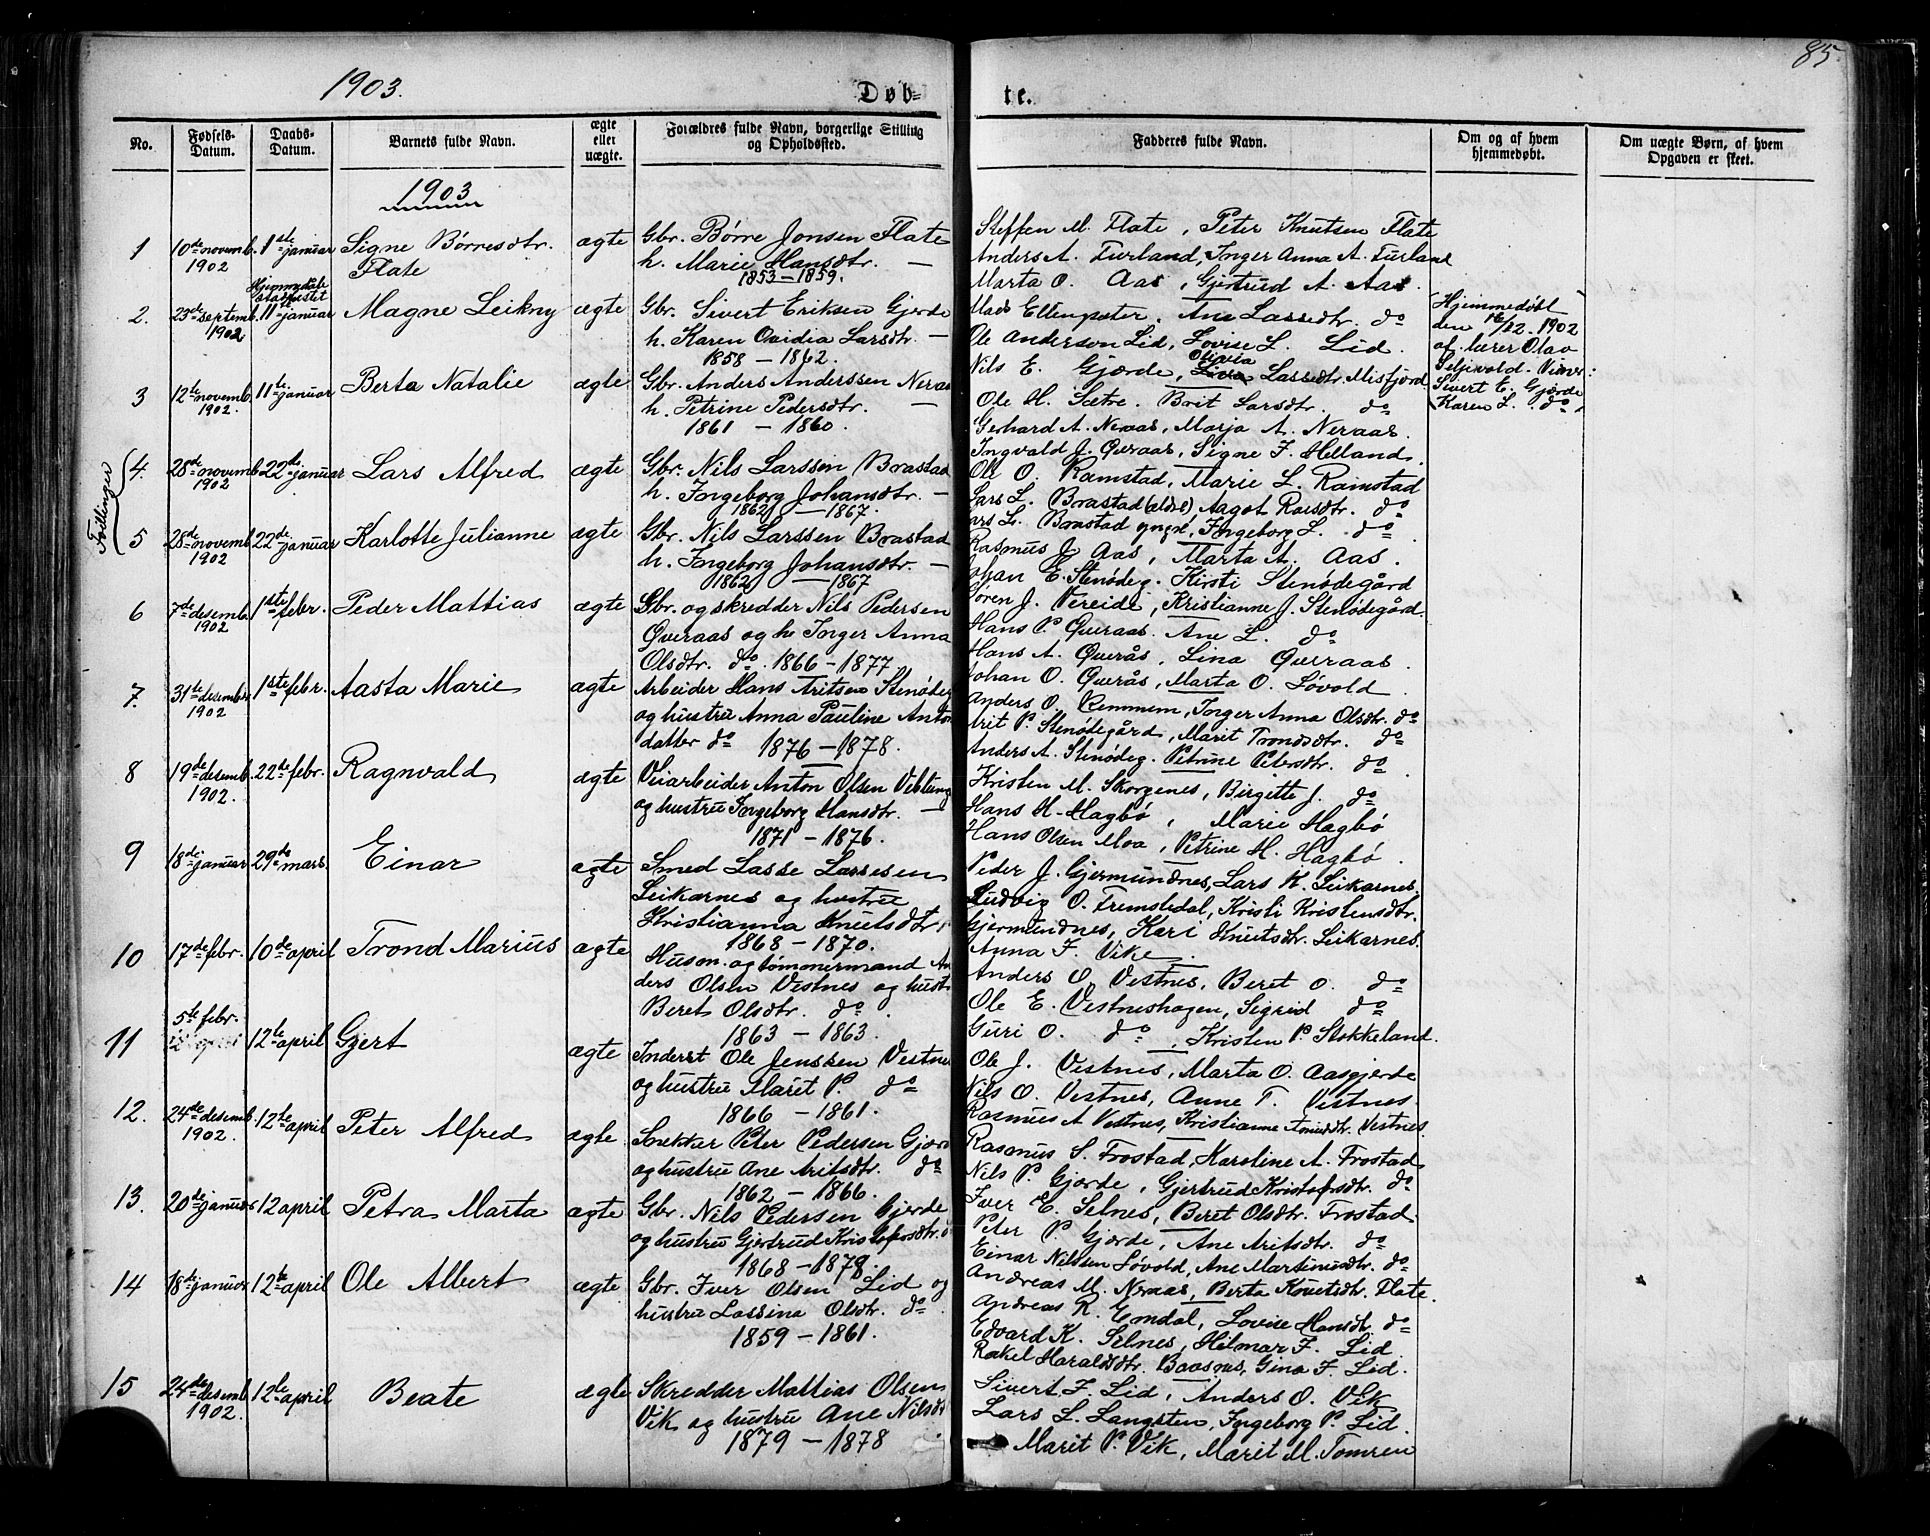 1903.
Døb-
te.
85.
No.
Fødsels-
Datum.
Daabs-
Datum.
Barnets fulde Navn.
ægte
eller
uægte.
Forældres fulde Navn, borgerlige Stilling
og Opholdssted.
Fadderes fulde Navn.
Om og af hvem
hjemmedøbt.
Om uægte Børn, af hvem
Opgaven er skeet.
1903
1
10de novemb.
1902
1ste januar
Signe Børresdtr.
Flate
ægte
Gbr. Børre Jonsen Flate
h. Marie Hansdtr. —
1853 — 1859.
Steffen M. Flate, Peter Knutsen Flate
Anders A. Furland, Inger Anna A. Furland
Marta O. Aas, Gjertrud A. Aas.
2.
23de septemb.
1902
Hjemmedåb
stadfestet
11te januar
Magne Leikny
ægte
Gbr. Sivert Eriksen Gjerde
h. Karen Ovidia Larsdtr. —
1858 — 1862.
Mads Ellenpeter. Ane Lassedtr. do
Ole Anderson Lid, Lovise L. Lid.
Nils E. Gjerde, Olivia Lassedtr. Misfjord
Hjemmedøbt
den 16/12 - 1902
af lærer Olav
Seljevold - Viner:
Sivert E. Gjerde
Karen L. do
3
12te novemb.
1902.
11te januar
Berta Natalie
ægte
Gbr. Anders Anderssen Neraas
h. Petrine Pedersdtr. —
1861 — 1860.
Ole H. Sætre. Brit Larsdtr. do
Gerhard A. Neraas, Marja A. Neraas.
Ingvald J. Øveraas, Signe F. Helland.
Tvillinger
4.
28de novemb.
1902
22de januar
Lars Alfred
ægte
Gbr. Nils Larssen Brastad
h. Ingeborg Johansdtr. —
1862 — 1867.
Ole O. Ramstad, Marie L. Ramstad
Lars L. Brastad (eldre) Aagot Roesdtr. do
Lars L. Brastad yngre, Ingeborg L. do
5
28de novemb.
1902
22de januar
Karlotte Julianne
ægte
Gbr. Nils Larssen Brastad
h. Ingeborg Johansdtr. —
1862 — 1867
Rasmus J. Aas, Marta A. Aas.
Johan E. Stenødeg. Kirsti Stenødegård
Søren J. Vereide, Kristianne J. Stenødegård.
6
7de desemb.
1902
1ste febr.
Peder Mattias
ægte
Gbr. og skredder Nils Pedersen
Øveraas og h. Inger Anna
Olsdtr. do. 1866 - 1877.
Hans P. Øveraas. Ane L. do
Hans A. Øverås, Lina Øveraas.
Johan O. Øverås, Marta O. Løvold
7.
31te desemb.
1902
1ste febr.
Aasta Marie
ægte
Arbeider Hans Aritsen Stenødeg
og hustru Anna Pauline Anton
datter do 1876 — 1878.
Anders O. Remmem, Inger Anna Olsdtr. do
Arit P. Stenødegård, Marit Trondsdtr. do
Anders A. Stenødeg. Petrine Petersdtr. do
8
19de desemb.
1902.
22de febr.
Ragnvald
ægte
Veiarbeider Anton Olsen Veblung
og hustru Ingeborg Hansdtr. —
1871 - 1876.
Kristen M. Skorgenes, Birgitte J. do
Hans H. Hagbø, Marie Hagbø
Hans Olsen Moa, Petrine H. Hagbø.
9
18de januar
29de mars.
Einar
ægte
Smed Lasse Lassesen
Leikarnes og hustru
Kristianna Knutsdtr.
1868 - 1870.
Peder J. Gjermundnes, Lars K. Leikarnes.
Ludvig O. Fremstedal, Kristi Kristensdtr.
Gjermundnes, Kari Knutsdtr. Leikarnes.
Anna F. Vike.
10
17de febr.
10de april
Trond Marius
ægte
Husm. og tømmermand An
ders Olsen Vestnes og hust
Beret Olsdtr. do.
1863 - 1863.
Anders O. Vestnes, Beret O. do
Ole E. Vestneshagen, Sigrid do
Guri O. do, Kristen P. Stokkeland.
11
5te febr.
12te april
Gjert
ægte
Inderst Ole Jenssen Vestnes
og hustru Maret P. do
1866 - 1861.
Ole J. Vestnes, Marta O. Aasgjerde
Nils O. Vestnes, Anne T. Vestnes.
Rasmus A Vestnes, Kristianne Aritsdtr. Vestnes.
12.
24de desemb.
1902.
12te april
Peter Alfred
ægte
Snekker Peter Pedersen Gjerde
og hustru Ane Aritsdtr. do
1862 - 1866.
Rasmus S. Frostad, Karoline A. Frostad
Nils P. Gjerde, Gjertrud Kristofersdtr. do
Iver E. Selnes, Beret Olsdtr. Frostad.
13.
20de januar
12 april
Petra Marta
ægte
Gbr. Nils Pedersen Gjerde
og hustru Gjertrud Kristofersdtr. do
1868 - 1878
Peter P. Gjerde, Ane Aritsdtr. do
Einar Nilssen Løvold, Ane Martinusdtr. do
Andreas M. Neraas, Berta Knutsdtr. Flate.
14
18de januar
12te april
Ole Albert
ægte
Gbr. Iver Olsen Lid og
hustru Lassina Olsdtr. do.
1859 - 1861.
Andreas K. Emdal, Lovise Hansdtr. do
Edvard K. Selnes, Hilmar F. Lid
Rakel Haraldsdtr. Baasnes, Gina F. Lid.
15
24de desemb.
1902.
12te april
Beate
ægte
Skredder Mattias Olsen
Vik og hustru Ane Nilsdt
1879 - 1878
Sivert F. Lid, Anders O. Vik
Lars L. Langsten, Ingeborg P. Lid.
Marit P. Vik, Marit M. Tomren